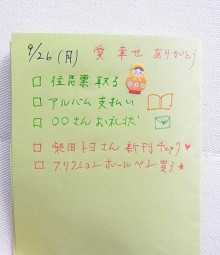 9/26(月) 愛 幸せ ありがとう
□ 住民票取る
□ アルバム支払い
□ ○○さんお礼状
□ トヨさん 新刊チェック♥
□ フリクションボールペン買う★